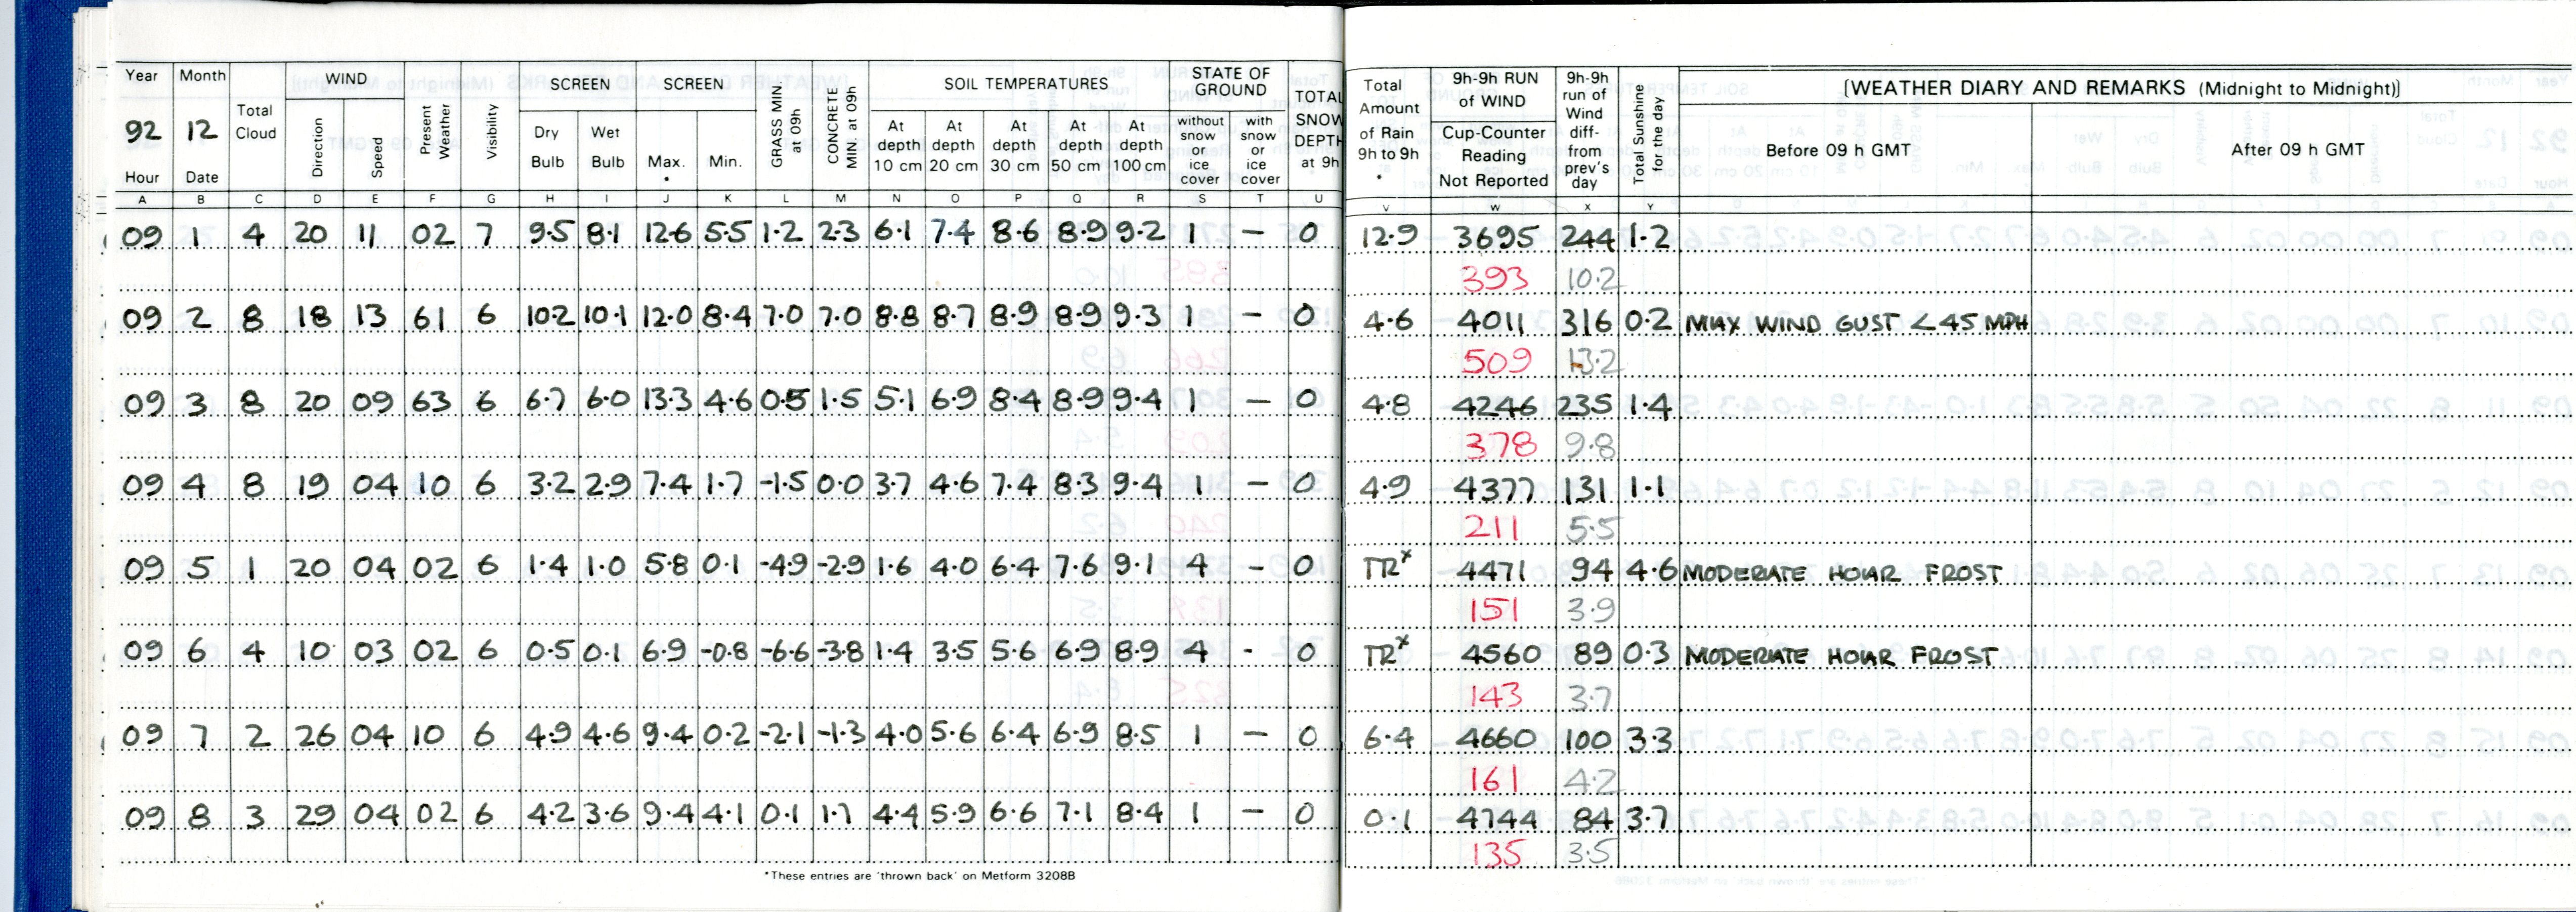 Year Month Total Cloud WIND Present Weather Visibility SCREEN SCREEN GRASS MIN. at 09h CONCRETE MIN. at 09h SOIL TEMPERATURES STATE OF GROUND TOTAL SNOW DEPTH at 9h Total Amount of Rain 9h to 9h * 9h-9h RUN of WIND 9h-9h run of Wind diff- from prev's day Total Sunshine for the day [WEATHER DIARY AND REMARKS (Midnight to Midnight)]
92 12 Direction Speed Dry Bulb Wet Bulb Max. * Min. At depth 10 cm At depth 20 cm At depth 30 cm At depth 50 cm At depth 100 cm without snow or ice cover with snow or ice cover Cup-Counter Reading Not Reported Before 09 h GMT After 09 h GMT
Hour Date
A B C D E F G H I J K L M N O P Q R S T U V W X Y
09 1 4 20 11 02 7 9.5 8.1 12.6 5.5 1.2 2.3 6.1 7.4 8.6 8.9 9.2 1 – 0 12.9 3695 244 1.2
393 10.2
09 2 8 18 13 61 6 10.2 10.1 12.0 8.4 7.0 7.0 8.8 8.7 8.9 8.9 9.3 1 – 0 4.6 4011 316 0.2 MAX WIND GUST <45 MPH
509 13.2
09 3 8 20 09 63 6 6.7 6.0 13.3 4.6 0.5 1.5 5.1 6.9 8.4 8.9 9.4 1 – 0 4.8 4246 235 1.4
378 9.8
09 4 8 19 04 10 6 3.2 2.9 7.4 1.7 -1.5 0.0 3.7 4.6 7.4 8.3 9.4 1 – 0 4.9 4377 131 1.1
211 5.5
09 5 1 20 04 02 6 1.4 1.0 5.8 0.1 -4.9 -2.9 1.6 4.0 6.4 7.6 9.1 4 – 0 TR* 4471 94 4.6 MODERATE HOAR FROST
151 3.9
09 6 4 10 03 02 6 0.5 0.1 6.9 -0.8 -6.6 -3.8 1.4 3.5 5.6 6.9 8.9 4 - 0 TR* 4560 89 0.3 MODERATE HOAR FROST
143 3.7
09 7 2 26 04 10 6 4.9 4.6 9.4 0.2 -2.1 -1.3 4.0 5.6 6.4 6.9 8.5 1 – 0 6.4 4660 100 3.3
161 4.2
09 8 3 29 04 02 6 4.2 3.6 9.4 4.1 0.1 1.7 4.4 5.9 6.6 7.1 8.4 1 – 0 0.1 4744 84 3.7
135 3.5
*These entries are 'thrown back' on Metform 3208B